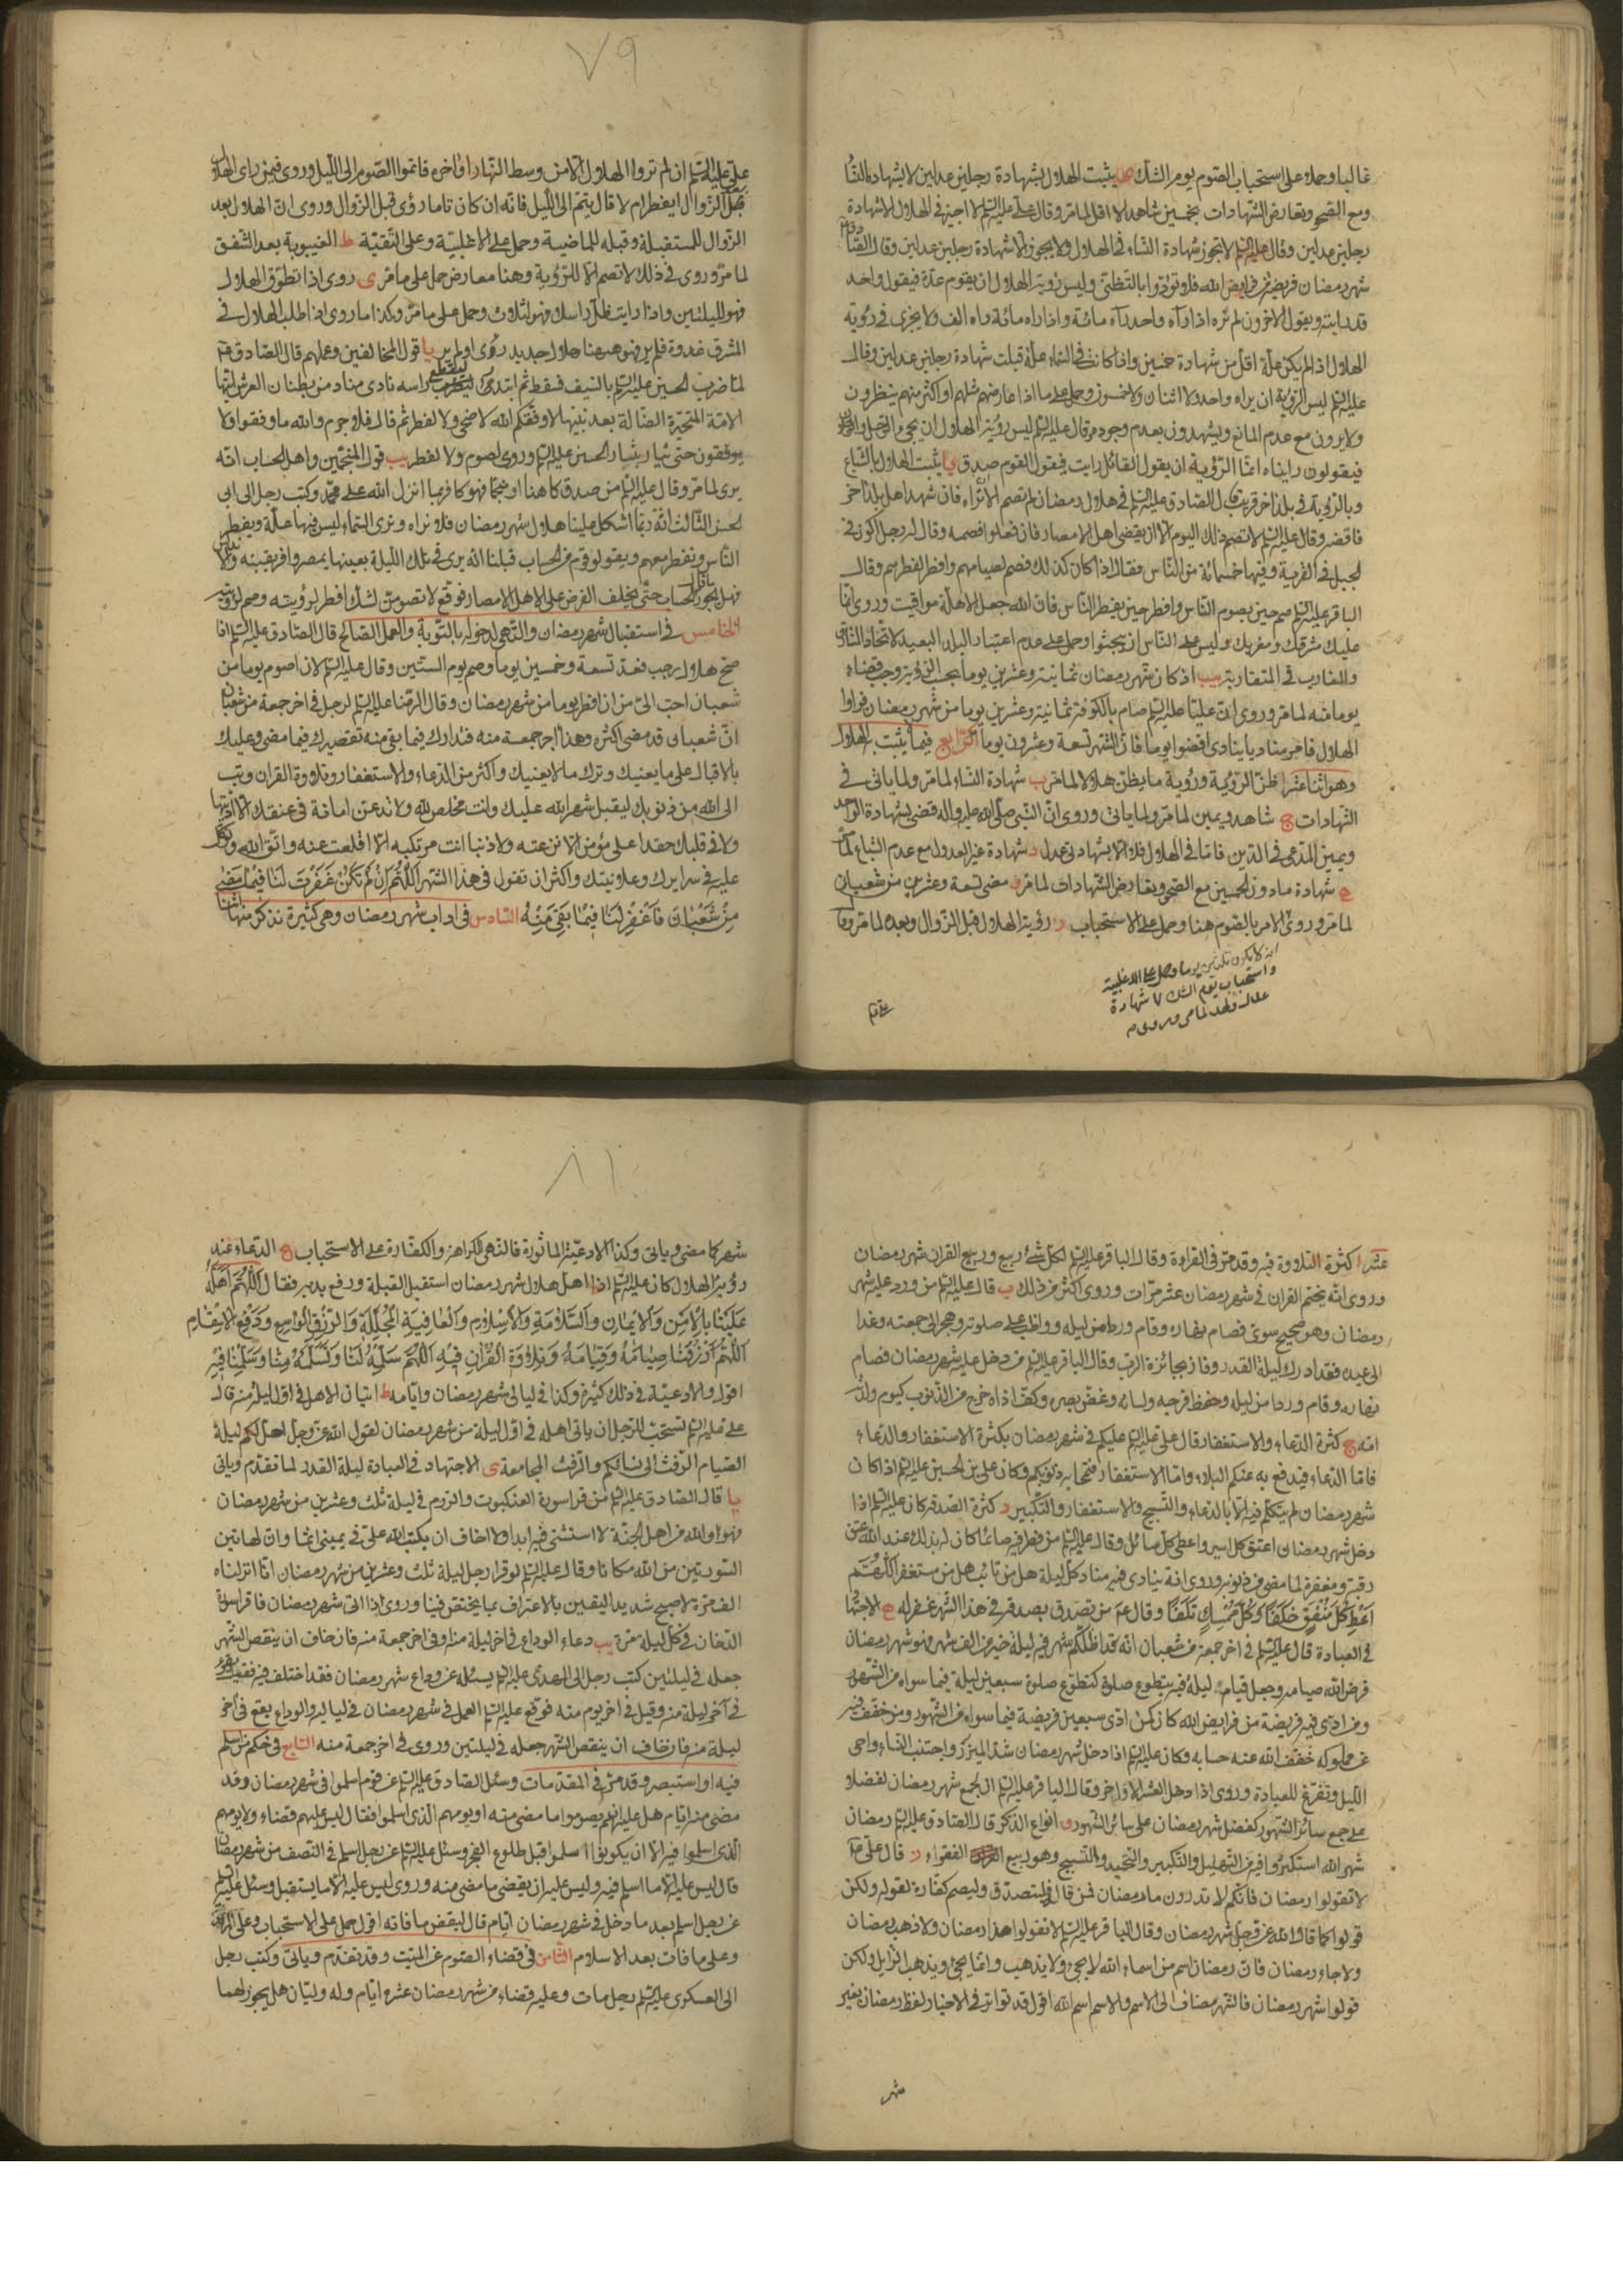 غالبا وحمله على استحباب الصوم يوم الشك يثبت الهلال بشهادة رجلين عدلين لا بشهادة النسا
ومع الصحو وتعارض الشهادات بخمسين شاهدا لا اقل لما مر وقال على عليه السلم لا اجيز فى الهلال الا شهادة
رجلين عدلين وقال عليه السلم لا تجوز شهادة النساء فى الهلال ولا يجوز الا شهادة رجلين عدلين وقال
شهر رمضان فريضة من فرايض الله فلا تؤدوا بالتظنى وليس رؤية الهلال ان يقوم عدة فيقول واحد
قد رايته ويقول الاخرون لم نره اذا راه واحد راه مائة واذا راه مائة راه الف ولا يجزى فى رؤية
الهلال اذا لم يكن علة اقل من شهادة خمسين واذا كانت فى السماء علة قبلت شهادة رجلين عدلين وقال
عليه السلم ليس الرؤية ان يراه واحد ولا اثنان ولا خمسون وحمل على ما اذا عارضهم مثلهم او اكثر منهم ينظرون
ولا يرون مع عدم المانع ويشهدون بعدم وجوده وقال عليه السلم ليس رؤية الهلال ان يجئ الرجل والرجلان
فيقولون رايناه انما الرؤية ان يقول القائل رايت فيقول القوم صدق يا يثبت الهلال بالشياع
وبالرؤية فى بلد اخر قريب قال الصادق عليه السلم فى هلال رمضان لا تصم الا ان تراه فان شهد اهل بلد اخر
فاقضه وقال عليه السلم لا تصم ذلك اليوم الا ان يقضى اهل الامصار فان فعلوا فصمه وقال له رجل اكون فى
الجبل فى القرية وفيها خمسمائة من الناس فقال اذا كان كذلك فصم لصيامهم وافطر لفطرهم وقال
الباقر عليه السلم صم حين يصوم الناس وافطر حين يفطر الناس فان الله جعل الاهلة مواقيت وروى انما
عليك مشرقك ومغربك وليس على الناس ان يبحثوا وحمل على عدم اعتبار البلاد البعيدة لاتحاد المشارق
والمغارب فى المتقاربة يب اذا كان شهر رمضان ثمانية وعشرين يوما بحسب الرؤية وجب قضاء
يوم منه لما مر وروى ان عليا عليه السلم صام بالكوفة ثمانية وعشرين يوما من شهر رمضان فراوا
الهلال فامر مناديا ينادى اقضوا يوما فان الشهر تسعة وعشرون يوما الرابع فيما لا يثبت به الهلال
وهو اثنا عشر ا ظن الرؤية ورؤية ما يظن هلالا لما مر ب شهادة النساء لما مر ولما ياتى فى
الشهادات ج شاهد ويمين لما مر ولما ياتى وروى ان النبى صلى الله عليه واله قضى بشهادة الواحد
ويمين المدعى فى الدين فاما فى الهلال فلا الا بشاهدى عدل د شهادة غير العدول مع عدم الشياع لما مر
ه شهادة ما دون الخمسين مع الصحو وتعارض الشهادات لما مر و مضى تسعة وعشرين من شعبان
لما مر وروى الامر بالصوم هنا وحمل على الاستحباب ز رؤية الهلال قبل الزوال وبعده لما مر وقا
واستحباب يوم الشك ٧ شهادة
على عليه السلم ان لم تروا الهلال الا من وسط النهار او اخره فاتموا الصوم الى الليل وروى فيمن راى الهلال
قبل الزوال ايفطر ام لا قال يتم الى الليل فانه ان كان تاما رؤى قبل الزوال وروى ان الهلال بعد
الزوال للمستقبلة وقبله للماضية وحمل على الاغلبية وعلى التقية ط الغيبوبة بعد الشفق
لما مر وروى فى ذلك لا تصم الا للرؤية وهنا معارض حمل على ما مر ى روى اذا تطوق الهلال
فهو لليلتين واذا رايت ظل راسك فهو لثلاث وحمل على ما مر وكذا ما روى اذا طلب الهلال فى
المشرق غدوة فلم ير فهو ههنا هلال جديد رؤى او لم ير يا قول المخالفين وعملهم قال الصادق
لما ضرب الحسين عليه السلم بالسيف فسقط ثم ابتدر ليقطع راسه نادى مناد من بطنان العرش ايتها
الامة المتحيرة الضالة بعد نبيها لا وفقكم الله لاضحى ولا لفطر ثم قال فلا جرم والله ما وفقوا ولا
يوفقون حتى يثار بثار الحسين عليه السلم وروى لصوم ولا لفطر يب قول المنجمين واهل الحساب انه
يرى لما مر وقال عليه السلم من صدق كاهنا او منجما فهو كافر بما انزل الله على محمد وكتب رجل الى ابى
الحسن الثالث انه ربما اشكل علينا هلال شهر رمضان فلا نراه ونرى السماء ليس فيها علة ويفطر
الناس ونفطر معهم ويقول قوم من الحساب قبلنا انه يرى فى تلك الليلة بعينها بمصر وافريقية والاندلس
فهل يجوز ما قال الحساب حتى يختلف الفرض على اهل الامصار فوقع لا تصومن لشك افطر لرؤيته وصم لرؤيته
الخامس فى استقبال شهر رمضان والتهئ لدخوله بالتوبة والعمل الصالح قال الصادق عليه السلم اذا
صح هلال رجب فعد تسعة وخمسين يوما وصم يوم الستين وقال عليه السلم لان اصوم يوما من
شعبان احب الى من ان افطر يوما من شهر رمضان وقال الرضا عليه السلم لرجل فى اخر جمعة من شعبان
ان شعبان قد مضى اكثره وهذا اخر جمعة منه فتدارك فيما بقى منه تقصيرك فيما مضى وعليك
بالاقبال على ما يعنيك وترك ما لا يعنيك واكثر من الدعاء والاستغفار وتلاوة القران وتب
الى الله من ذنوبك ليقبل شهر الله عليك وانت مخلص لله ولا تدعن امانة فى عنقك الا اديتها
ولا فى قلبك حقدا على مؤمن الا نزعته ولا ذنبا انت مرتكبه الا اقلعت عنه واتق الله وتوكل
عليه فى سرايرك وعلانيتك واكثر ان تقول فى هذا الشهر اَللّهُمَّ اِنْ لَمْ تَكُنْ غَفَرْتَ لَنا فيما مَضى
مِنْ شَعْبانَ فَاغْفِرْ لَنا فيما بَقِىَ مِنْهُ السادس فى اداب شهر رمضان وهى كثيرة نذكر منها اثنا
٧٩
عشر ا كثرة التلاوة فيه وقد مر فى القراءة وقال الباقر عليه السلم لكل شئ ربيع وربيع القران شهر رمضان
وروى انه يختم القران فى شهر رمضان عشر مرات وروى اكثر من ذلك ب قال عليه السلم من ورد عليه شهر
رمضان وهو صحيح سوى فصام نهاره وقام وردا من ليله وواظب على صلوته وهجر الى جمعته وغدا
الى عيده فقد ادرك ليلة القدر وفاز بجائزة الرب وقال الباقر عليه السلم من دخل عليه شهر رمضان فصام
نهاره وقام وردا من ليله وحفظ فرجه ولسانه وغض بصره وكف اذاه خرج من الذنوب كيوم ولدته
امه ج كثرة الدعاء والاستغفار قال على عليه السلم عليكم فى شهر رمضان بكثرة الاستغفار والدعاء
فاما الدعاء فيدفع به عنكم البلاء واما الاستغفار فتمحا به ذنوبكم وكان على بن الحسين عليه السلم اذا كان
شهر رمضان لم يتكلم فيه الا بالدعاء والتسبيح والاستغفار والتكبير د كثرة الصدقة كان عليه السلم اذا
دخل شهر رمضان اعتق كل اسير واعطى كل سائل وقال عليه السلم من فطر فيه صائما كان له بذلك عند الله عتق
رقبة ومغفرة لما مضى من ذنوبه وروى انه ينادى فيه مناد كل ليلة هل من تائب هل من مستغفر اللهم
اَعْطِ كُلَّ مُنْفِقٍ خَلَفًا وَكُلَّ مُمْسِكٍ تَلَفًا وقال ع من تصدق بصدقة فى هذا الشهر غفر له ه الاجتهاد
فى العبادة قال عليه السلم فى اخر جمعة من شعبان انه قد اظلكم شهر فيه ليلة خير من الف شهر وهو شهر رمضان
فرض الله صيامه وجعل قيام ليلة فيه بتطوع صلوة كتطوع صلوة سبعين ليلة فيما سواه من الشهور
ومن ادى فيه فريضة من فرايض الله كان كمن ادى سبعين فريضة فيما سواه من الشهور ومن خفف فيه
عن مملوكه خفف الله عنه حسابه وكان عليه السلم اذا دخل شهر رمضان شد الميزر واجتنب النساء واحى
الليل وتفرغ للعبادة وروى اذا دخل العشر الاواخر وقال الباقر عليه السلم ان لجمع شهر رمضان لفضلا
على جمع سائر الشهور كفضل شهر رمضان على سائر الشهور و انواع الذكر قال الصادق عليه السلم رمضان
شهر الله استكثروا فيه من التهليل والتكبير والتحميد والتسبيح وهو ربيع الفقراء ز قال على ع
لا تقولوا رمضان فانكم لا تدرون ما رمضان فمن قاله فليتصدق وليصم كفارة لقوله ولكن
قولوا كما قال الله عز وجل شهر رمضان وقال الباقر عليه السلم لا تقولوا هذا رمضان ولا ذهب رمضان
ولا جاء رمضان فان رمضان اسم من اسماء الله لا يجئ ولا يذهب وانما يجئ ويذهب الزايل ولكن
قولوا شهر رمضان فالشهر مضاف الى الاسم والاسم اسم الله اقول قد تواتر فى الاخبار لفظ رمضان بغير
شهر
شهر كما مضى وياتى وكذا الادعية الماثورة فالنهى للكراهة والكفارة على الاستحباب ح الدعاء عند
رؤية الهلال كان عليه السلم اذا اهل هلال شهر رمضان استقبل القبلة ورفع يديه فقال اَللّهُمَّ اَهِلَّهُ
عَلَيْنا بِالْاَمْنِ وَالْايمانِ وَالسَّلامَةِ وَالْاِسْلامِ وَالْعافِيَةِ الْمُجَلِّلَةِ وَالرِّزْقِ الْواسِعِ وَدَفْعِ الْاَسْقامِ
اَللّهُمَّ ارْزُقْنا صِيامَهُ وَقِيامَهُ وَتِلاوَةَ الْقُرْانِ فيهِ اَللّهُمَّ سَلِّمْهُ لَنا وَتَسَلَّمْهُ مِنّا وَسَلِّمْنا فيهِ
اقول والادعية فى ذلك كثيرة وكذا فى ليالى شهر رمضان وايامه ط اتيان الاهل فى اول ليلة منه قال
على عليه السلم تستحب للرجل ان ياتى اهله فى اول ليلة من شهر رمضان لقول الله عز وجل احل لكم ليلة
الصيام الرفث الى نسائكم والرفث المجامعة ى الاجتهاد فى العبادة ليلة القدر لما تقدم وياتى
يا قال الصادق عليه السلم من قرا سورة العنكبوت والروم فى ليلة ثلث وعشرين من شهر رمضان
فهو والله من اهل الجنة لا استثنى فيه ابدا ولا اخاف ان يكتب الله على فى يمينى اثما وان لهاتين
السورتين من الله مكانا وقال عليه السلم لو قرا رجل ليلة ثلث وعشرين من شهر رمضان انا انزلناه
الف مرة لاصبح شديد اليقين بالاعتراف بما يختص فينا وروى اذا اتى شهر رمضان فاقرا سورة
الدخان فى كل ليلة مرة يب دعاء الوداع فى اخر ليلة منه او فى اخر جمعة منه فان خاف ان ينقص الشهر
جعله فى ليلتين كتب رجل الى المهدى عليه السلم يسئله عن وداع شهر رمضان فقد اختلف فيه فقيل يقرء
فى اخر ليلة منه وقيل فى اخر يوم منه فوقع عليه السلم العمل فى شهر رمضان فى لياليه والوداع يقع فى اخر
ليلة منه فان خاف ان ينقص الشهر جعله فى ليلتين وروى فى اخر جمعة منه السابع فى حكم من اسلم
فيه او استبصر وقد مر فى المقدمات وسئل الصادق عليه السلم عن قوم اسلموا فى شهر رمضان وقد
مضى منه ايام هل عليهم ان يصوموا ما مضى منه او يومهم الذى اسلموا فقال ليس عليهم قضاء ولا يومهم
الذى اسلموا فيه الا ان يكونوا اسلموا قبل طلوع الفجر وسئل عليه السلم عن رجل اسلم فى النصف من شهر رمضان
قال ليس عليه الا ما اسلم فيه وليس عليه ان يقضى ما مضى منه وروى ليس عليه الا ما يستقبل وسئل عليه السلم
عن رجل اسلم بعد ما دخل فى شهر رمضان ايام قال ليقض ما فاته اقول حمل على الاستحباب وعلى المرتد
وعلى ما فات بعد الاسلام الثامن فى قضاء الصوم عن الميت وقد تقدم وياتى وكتب رجل
الى العسكرى عليه السلم رجل مات وعليه قضاء من شهر رمضان عشرة ايام وله وليان هل يجوز لهما